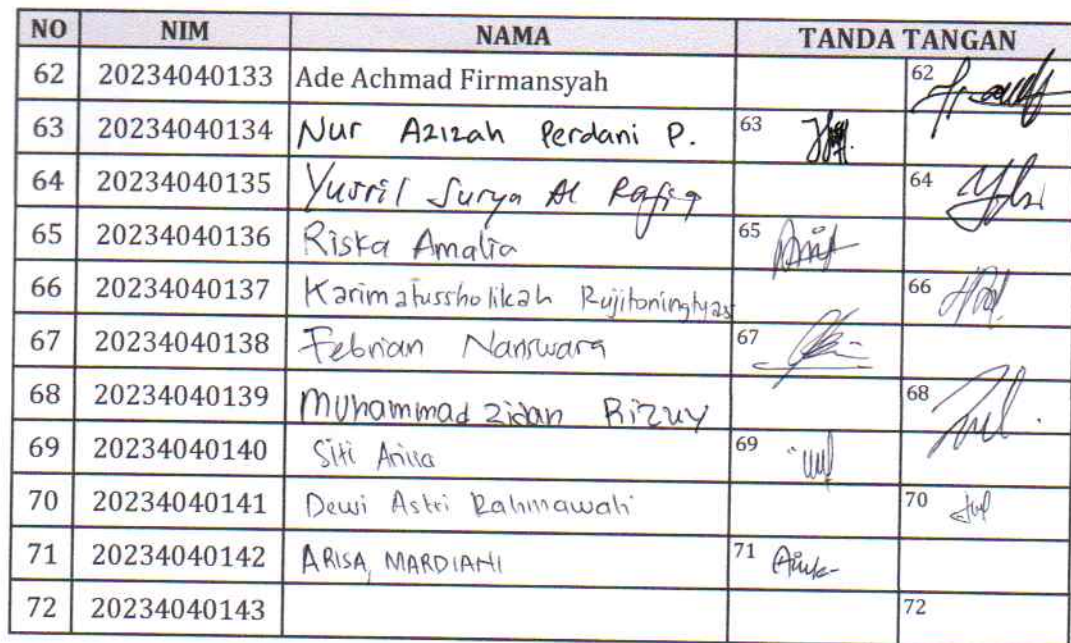 NO NIM NAMA TANDA TANGAN
62 20234040133 Ade Achmad Firmansyah 62
63 20234040134 Nur Azizah Perdani P. 63
64 20234040135 Yusril Surya Al Rafiq 64
65 20234040136 Riska Amalia 65
66 20234040137 Karimatussholikah Rujitoningtyas 66
67 20234040138 Febrian Nanswara 67
68 20234040139 Muhammad Zidan Rizuy 68
69 20234040140 Siti Anisa 69
70 20234040141 Dewi Astri Rahmawati 70
71 20234040142 ARISA MARDIANI 71
72 20234040143 72